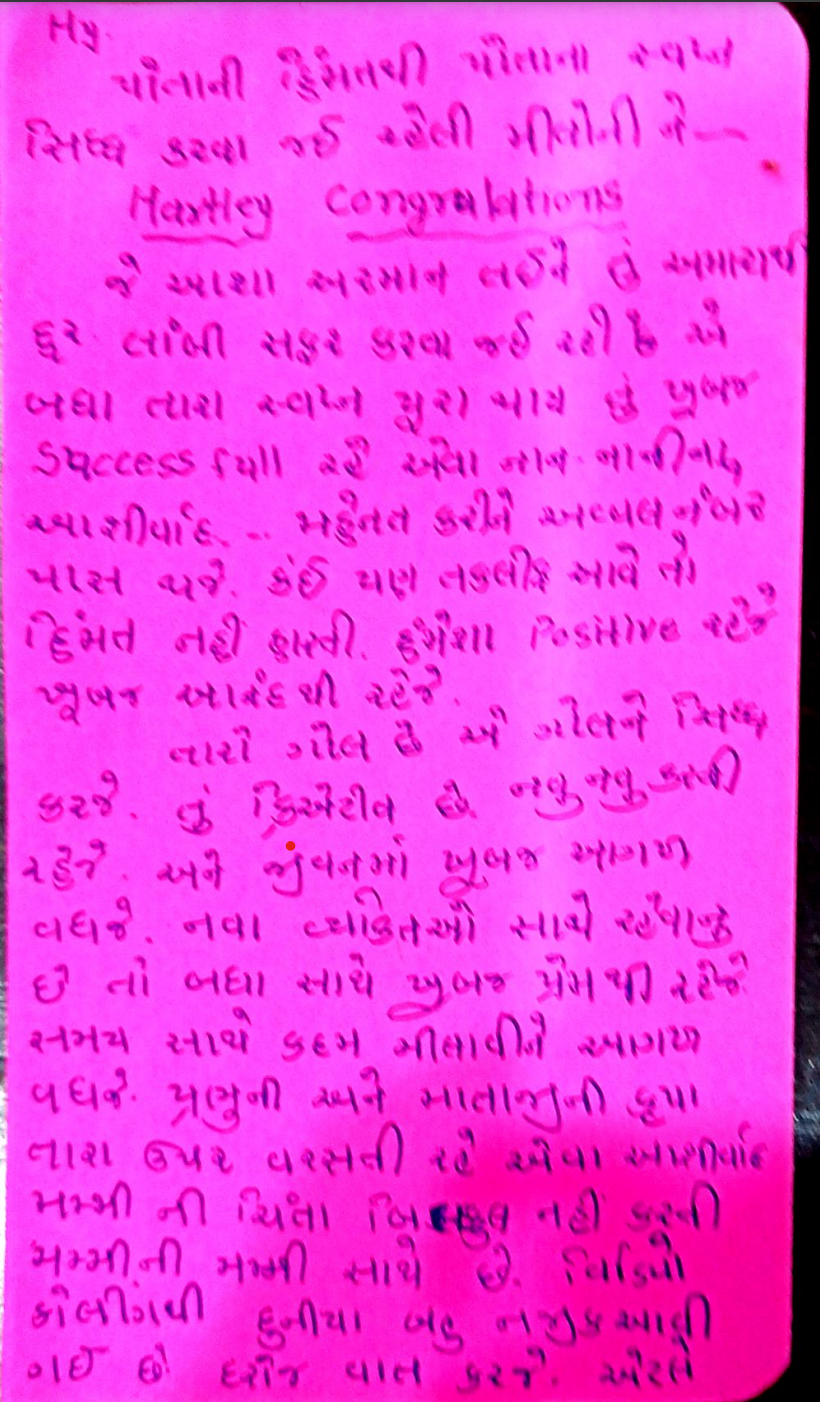 My.
પોતાની હિંમતથી પોતાના સ્વપ્ન
સિધ્ધ કરવા જઈ રહેલી મીલોની ને —
Hartley Congratulations
જે આશા અરમાન લઈને તું અમારાથી
દુર લાંબી સફર કરવા જઈ રહી છે એ
બધા તારા સ્વપ્ન પૂરા થાય તું ખુબજ
Successfull રહે એવા નાના-નાનીના
આશીર્વાદ... મહેનત કરીને અવ્વલ નંબરે
પાસ થજે. કંઈ પણ તકલીફ આવે તો
હિંમત નહી હારતી. હંમેશા Positive રહેજે
ખૂબજ આનંદથી રહેજે.
તારો ગોલ છે એ ગોલને સિધ્ધ
કરજે. તું ક્રિએટીવ છે. નવુ નવુ કરતી
રહેજે. અને જીવનમાં ખુબજ આગળ
વધજે. નવા વ્યકિતઓ સાથે રહેવાનું
છે તો બધા સાથે ખુબજ પ્રેમથી રહેજે
સમય સાથે કદમ મીલાવીને આગળ
વધજે. પ્રભુની અને માતાજીની કૃપા
તારા ઉપર વરસતી રહે એવા આશીર્વાદ
મમ્મી ની ચિંતા બિલકુલ નહી કરતી
મમ્મીની મમ્મી સાથે છે. વિડિયો
કોલીંગથી દુનીયા બહુ નજીક આવી
ગઈ છે દરોજ વાત કરજે. એટલે